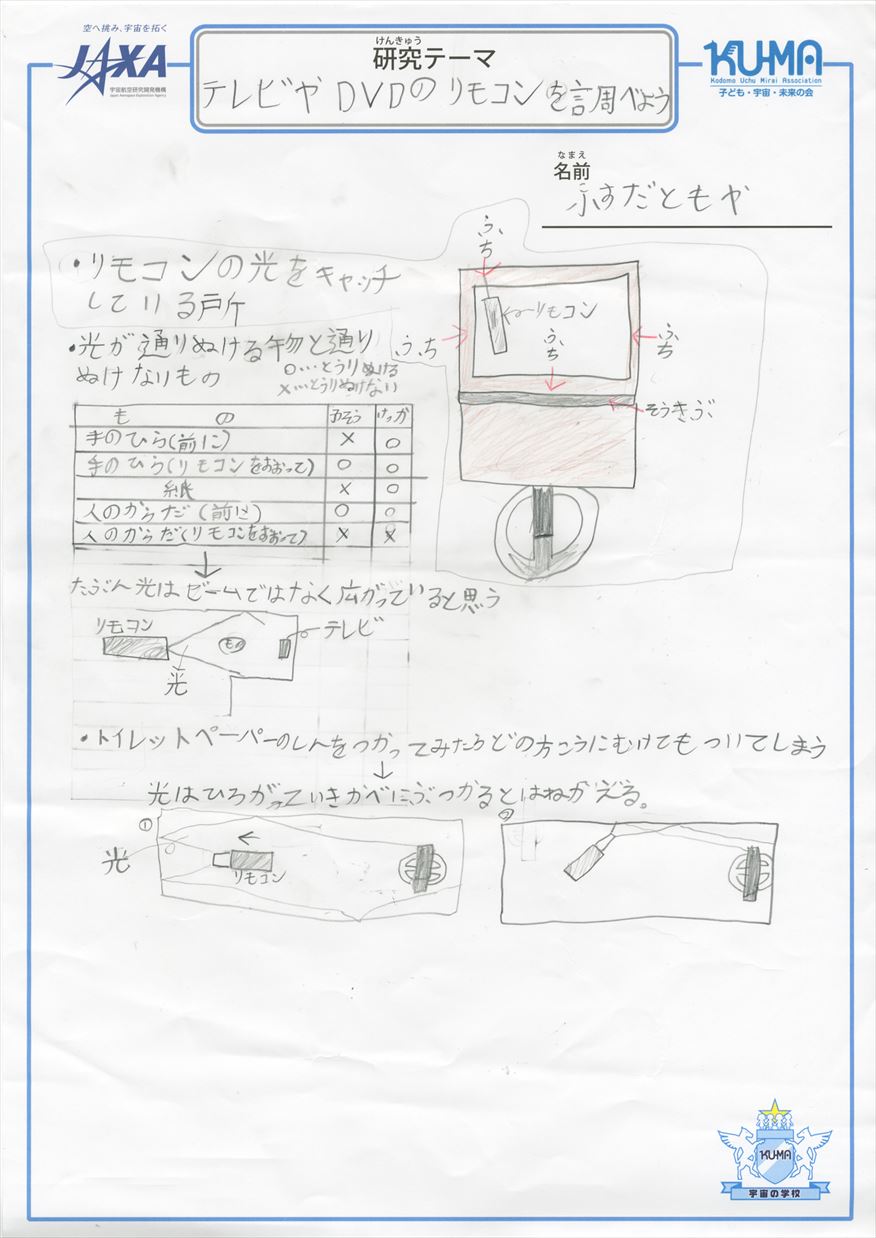 空へ挑み、宇宙を拓く
JAXA
宇宙航空研究開発機構
Japan Aerospace Exploration Agency
けんきゅう
研究テーマ
テレビや DVDの リモコンを調べよう
KU-MA
Kodomo Uchu Mirai Association
子ども・宇宙・未来の会
なまえ
名前
ふすだともや
・リモコンの光をキャッチ
している所
ふち
リモコン
ふち
ふち
ふち
そうきぶ
・光が通りぬける物と通り
ぬけないもの
○…とうりぬける
×…とうりぬけない
もの よそう けっか
手のひら(前に) × ○
手のひら(リモコンをおおって) ○ ○
紙 × ○
人のからだ(前に) ○ ○
人のからだ(リモコンをおおって) × ×
↓
たぶん光はビームではなく広がっていると思う
リモコン
もの
テレビ
光
・トイレットペーパーのしんをつかってみたらどの方こうにむけてもついてしまう
↓
光はひろがっていきかべにぶつかるとはねかえる。
①
光
リモコン
②
KU-MA
宇宙の学校